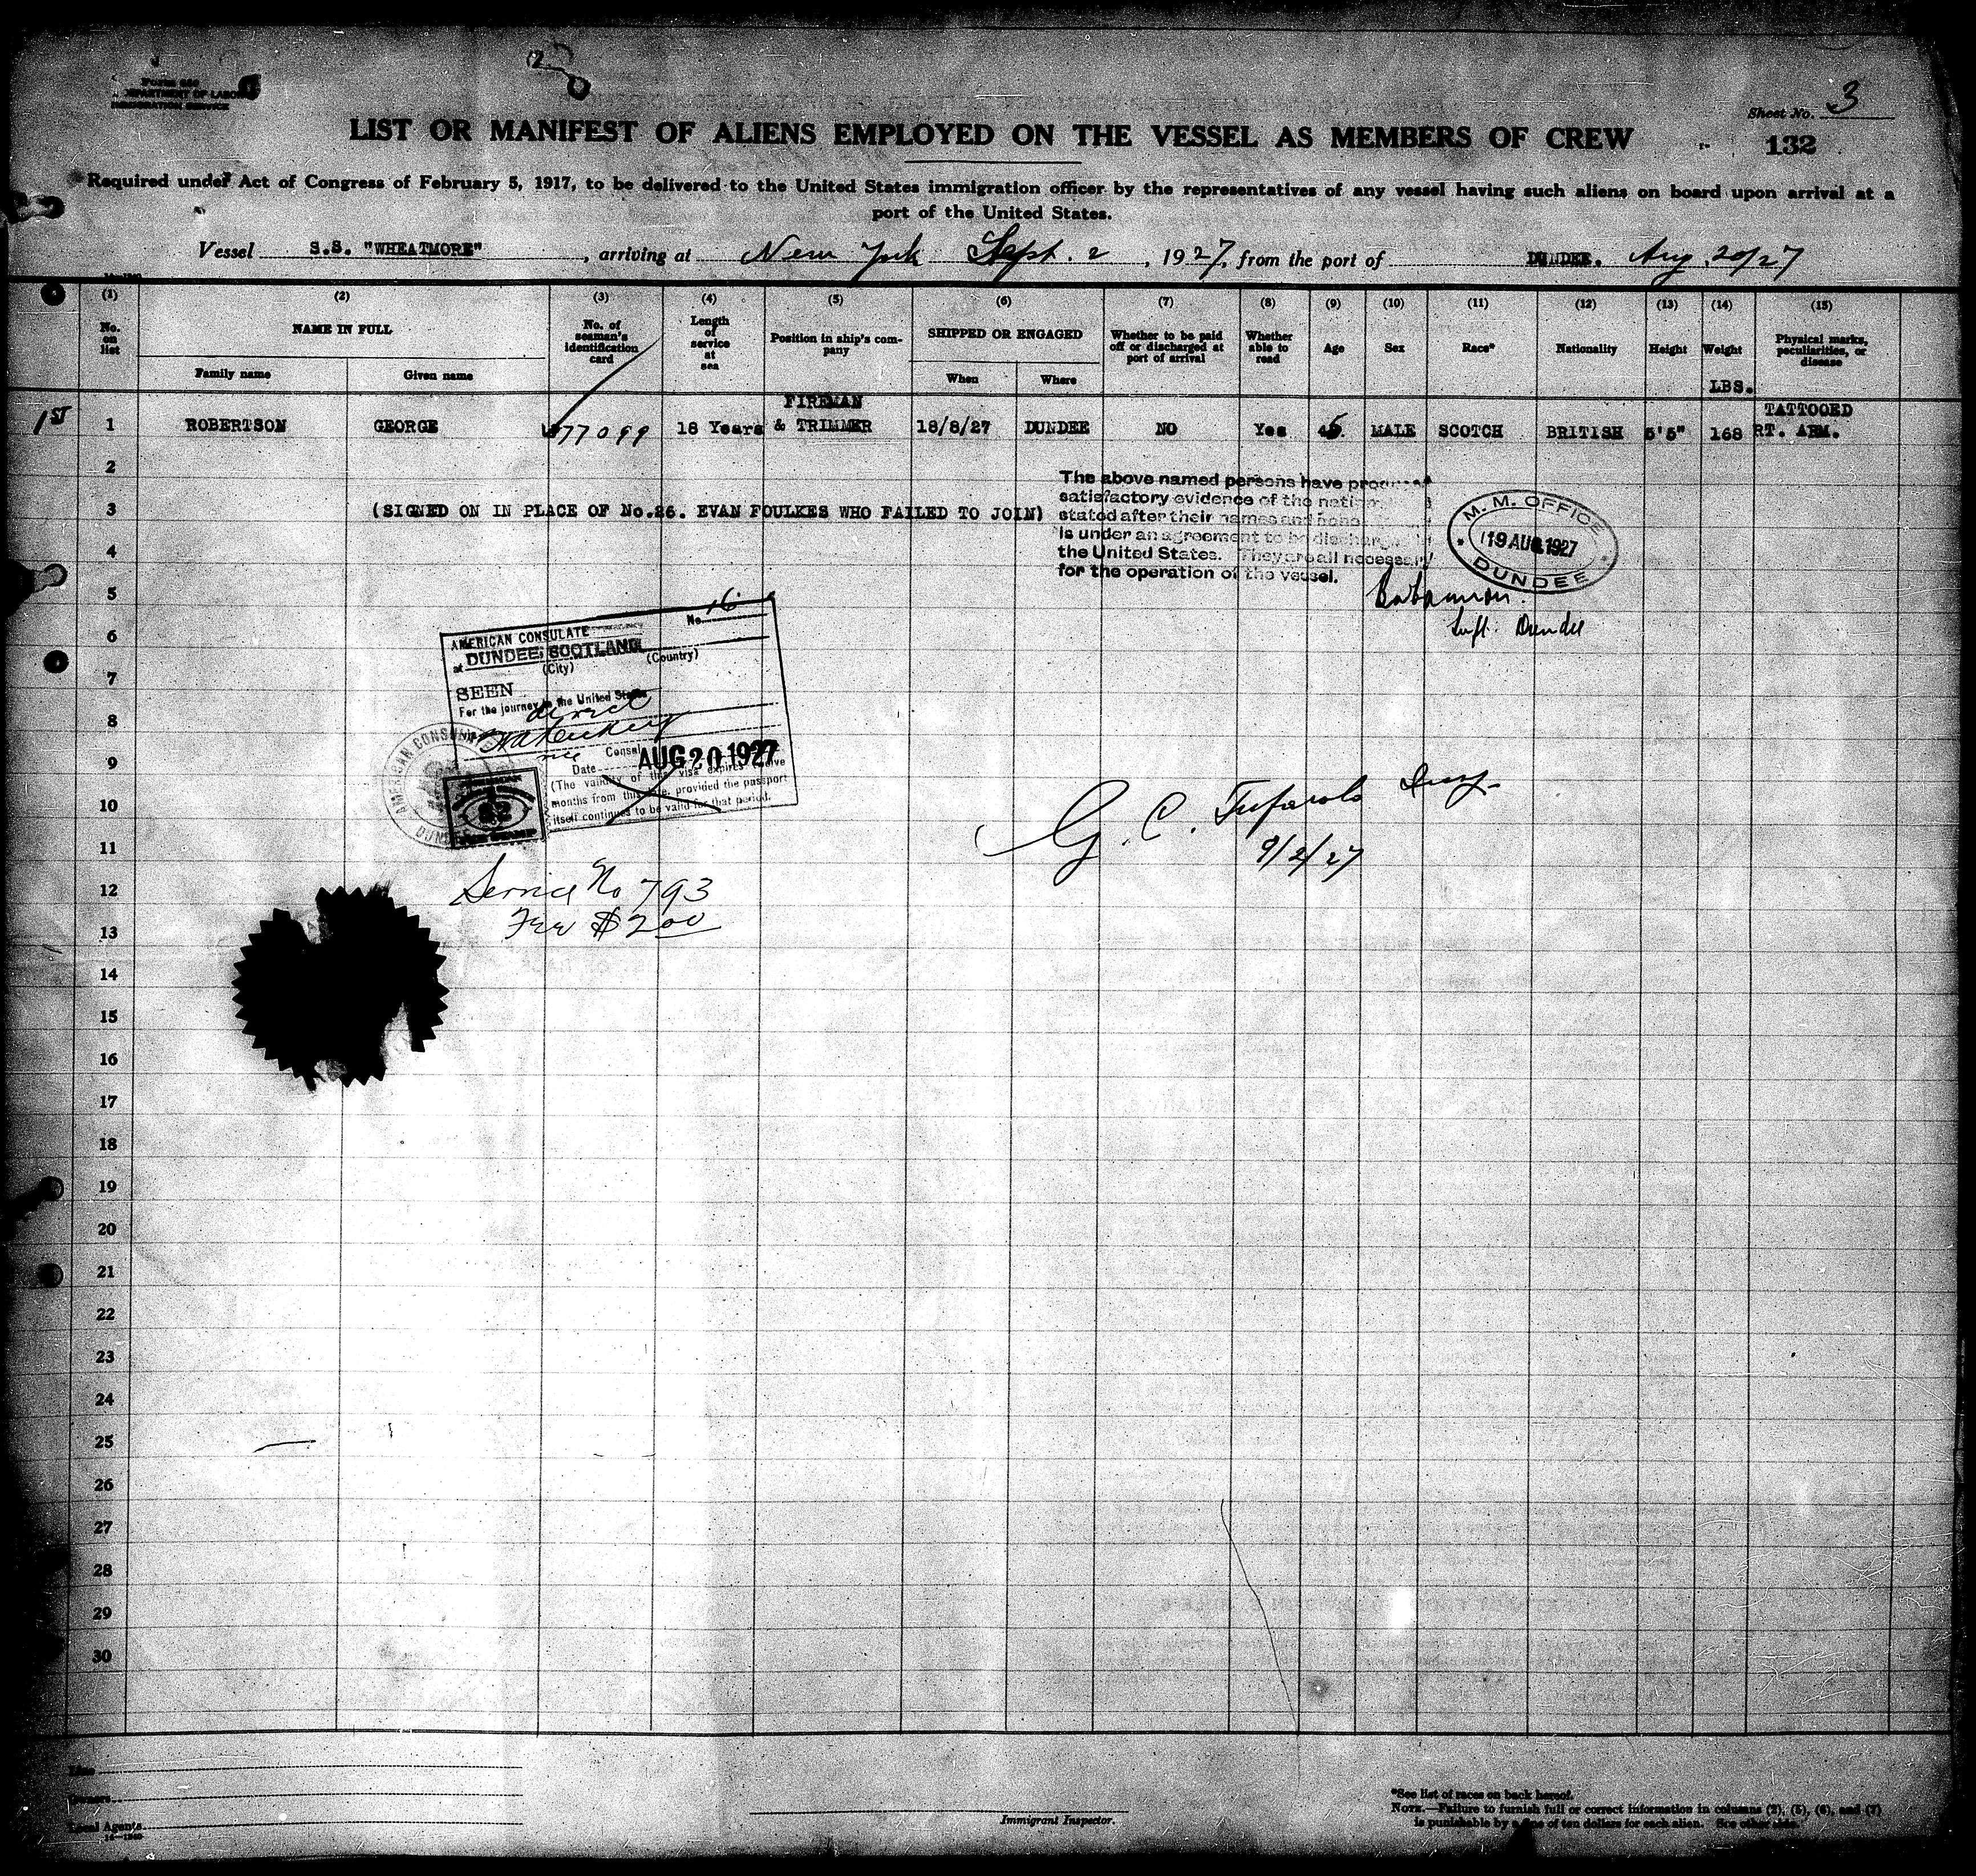 DEPARTMENT OF LABOR
IMMIGRATION SERVICE
Sheet No. 3
LIST OR MANIFEST OF ALIENS EMPLOYED ON THE VESSEL AS MEMBERS OF CREW
132
Required under Act of Congress of February 5, 1917, to be delivered to the United States immigration officer by the representatives of any vessel having such aliens on board upon arrival at a
port of the United States.
Vessel S.S. "WHEATMORE", arriving at New York Sept. 2, 1927, from the port of DUNDEE. Aug 20/27
(1) (2) (3) (4) (5) (6) (7) (8) (9) (10) (11) (12) (13) (14) (15)
No. on list
NAME IN FULL
Family name
Given name
No. of seaman's identification card
Length of service at sea
Position in ship's company
SHIPPED OR ENGAGED
When
Where
Whether to be paid off or discharged at port of arrival
Whether able to read
Age
Sex
Race*
Nationality
Height
Weight
LBS.
Physical marks, peculiarities, or disease
1ST 1 ROBERTSON GEORGE 77099 18 Years FIREMAN & TRIMMER 18/8/27 DUNDEE NO Yes 45. MALE SCOTCH BRITISH 5'5" 168 TATTOOED RT. ARM.
2
3 (SIGNED ON IN PLACE OF No.26. EVAN FOULKES WHO FAILED TO JOIN)
The above named persons have
satisfactory evidence of the
stated after their names and
is under an agreement to be
the United States. They are all necessary
for the operation of the vessel.
M. M. OFFICE
19 AUG 1927
DUNDEE
Supt. Dundee
4
5
6
7
8
9
10
11
12
13
14
15
16
17
18
19
20
21
22
23
24
25
26
27
28
29
30
No. 16
AMERICAN CONSULATE
at DUNDEE, SCOTLAND
(City) (Country)
SEEN
For the journey to the United States
direct
Consul
Date AUG 20 1927
(The validity of this visa expires twelve
months from this date, provided the passport
itself continues to be valid for that period.
AMERICAN CONSULATE
Service No 793
Fee $2.00
G. C.
9/2/27
Line
Owners
Local Agents
Immigrant Inspector.
*See list of races on back hereof.
NOTE.—Failure to furnish full or correct information in columns (2), (5), (6), and (7)
is punishable by a fine of ten dollars for each alien. See other side.